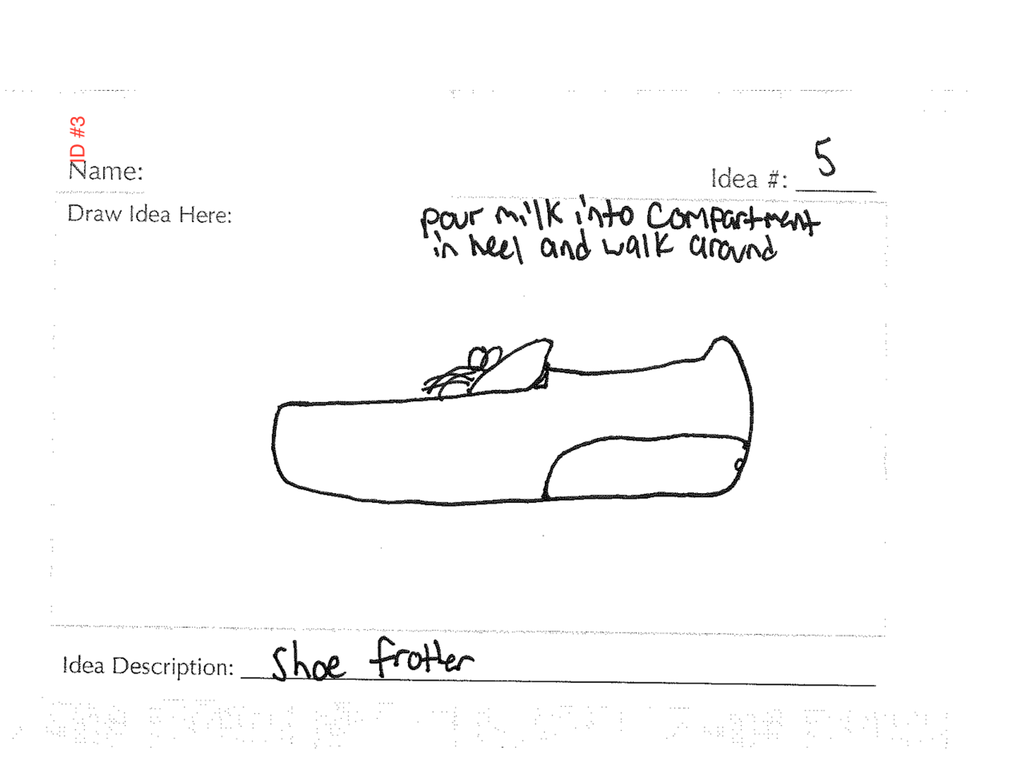 ID #3
Name:
Idea #: 5
Draw Idea Here:
pour milk into compartment
in heel and walk around
Idea Description: Shoe frother